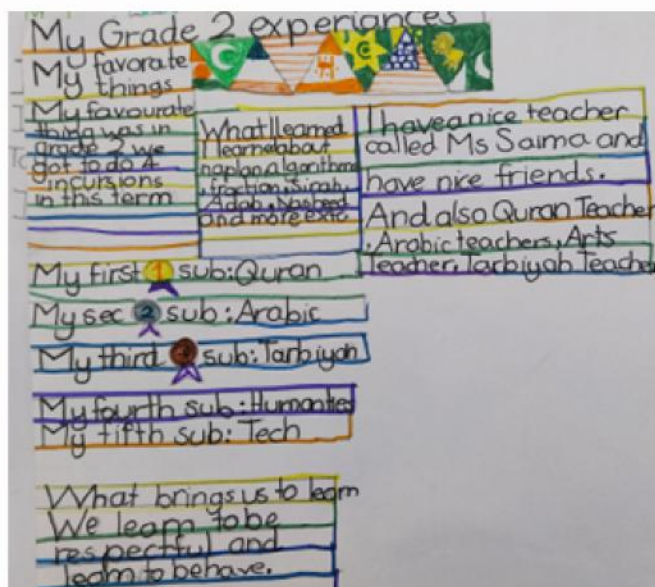 My Grade 2 experiances
My favorate
things
My favourate
thing was in
grade 2 we
got to do 4
incursions
in this term
What I learned
I learne about
naplan, algorithems
, fraction, Sirah,
Adab, Nasheed
and more extc
I have a nice teacher
called Ms Saima and
have nice friends.
And also Quran Teacher
, Arabic teachers, Arts
Teacher, Tarbiyah Teacher
My first 1 sub: Quran
My sec 2 sub: Arabic
My third 3 sub: Tarbiyah
My fourth sub: Humanties
My fifth sub: Tech
What brings us to learn
We learn to be
respectful and
learn to behave.